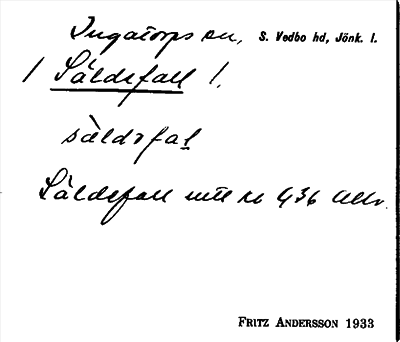 Ingatorps sn, S. Vedbo hd, Jönk. l.
/ Säldefall /.
säldəfal
Säldefall utt nr 436
FRITZ ANDERSSON 1933